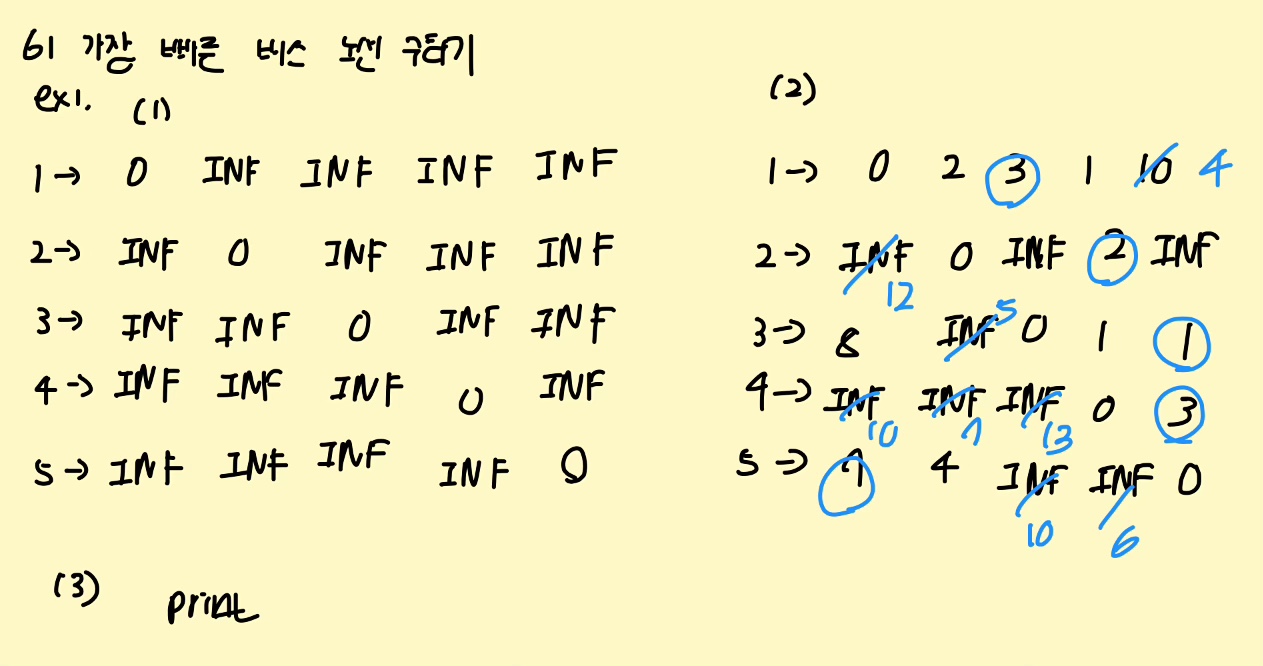 61 가장 빠른 버스 노선 구하기
ex1. (1)
1→ 0 INF INF INF INF
2→ INF 0 INF INF INF
3→ INF INF 0 INF INF
4→ INF INF INF 0 INF
5→ INF INF INF INF 0
(2)
1→ 0 2 3 1 10 4
2→ INF 12 0 INF 2 INF
3→ 8 INF 5 0 1 1
4→ INF 10 INF 7 INF 13 0 3
5→ 7 4 INF 10 INF 6 0
(3) print